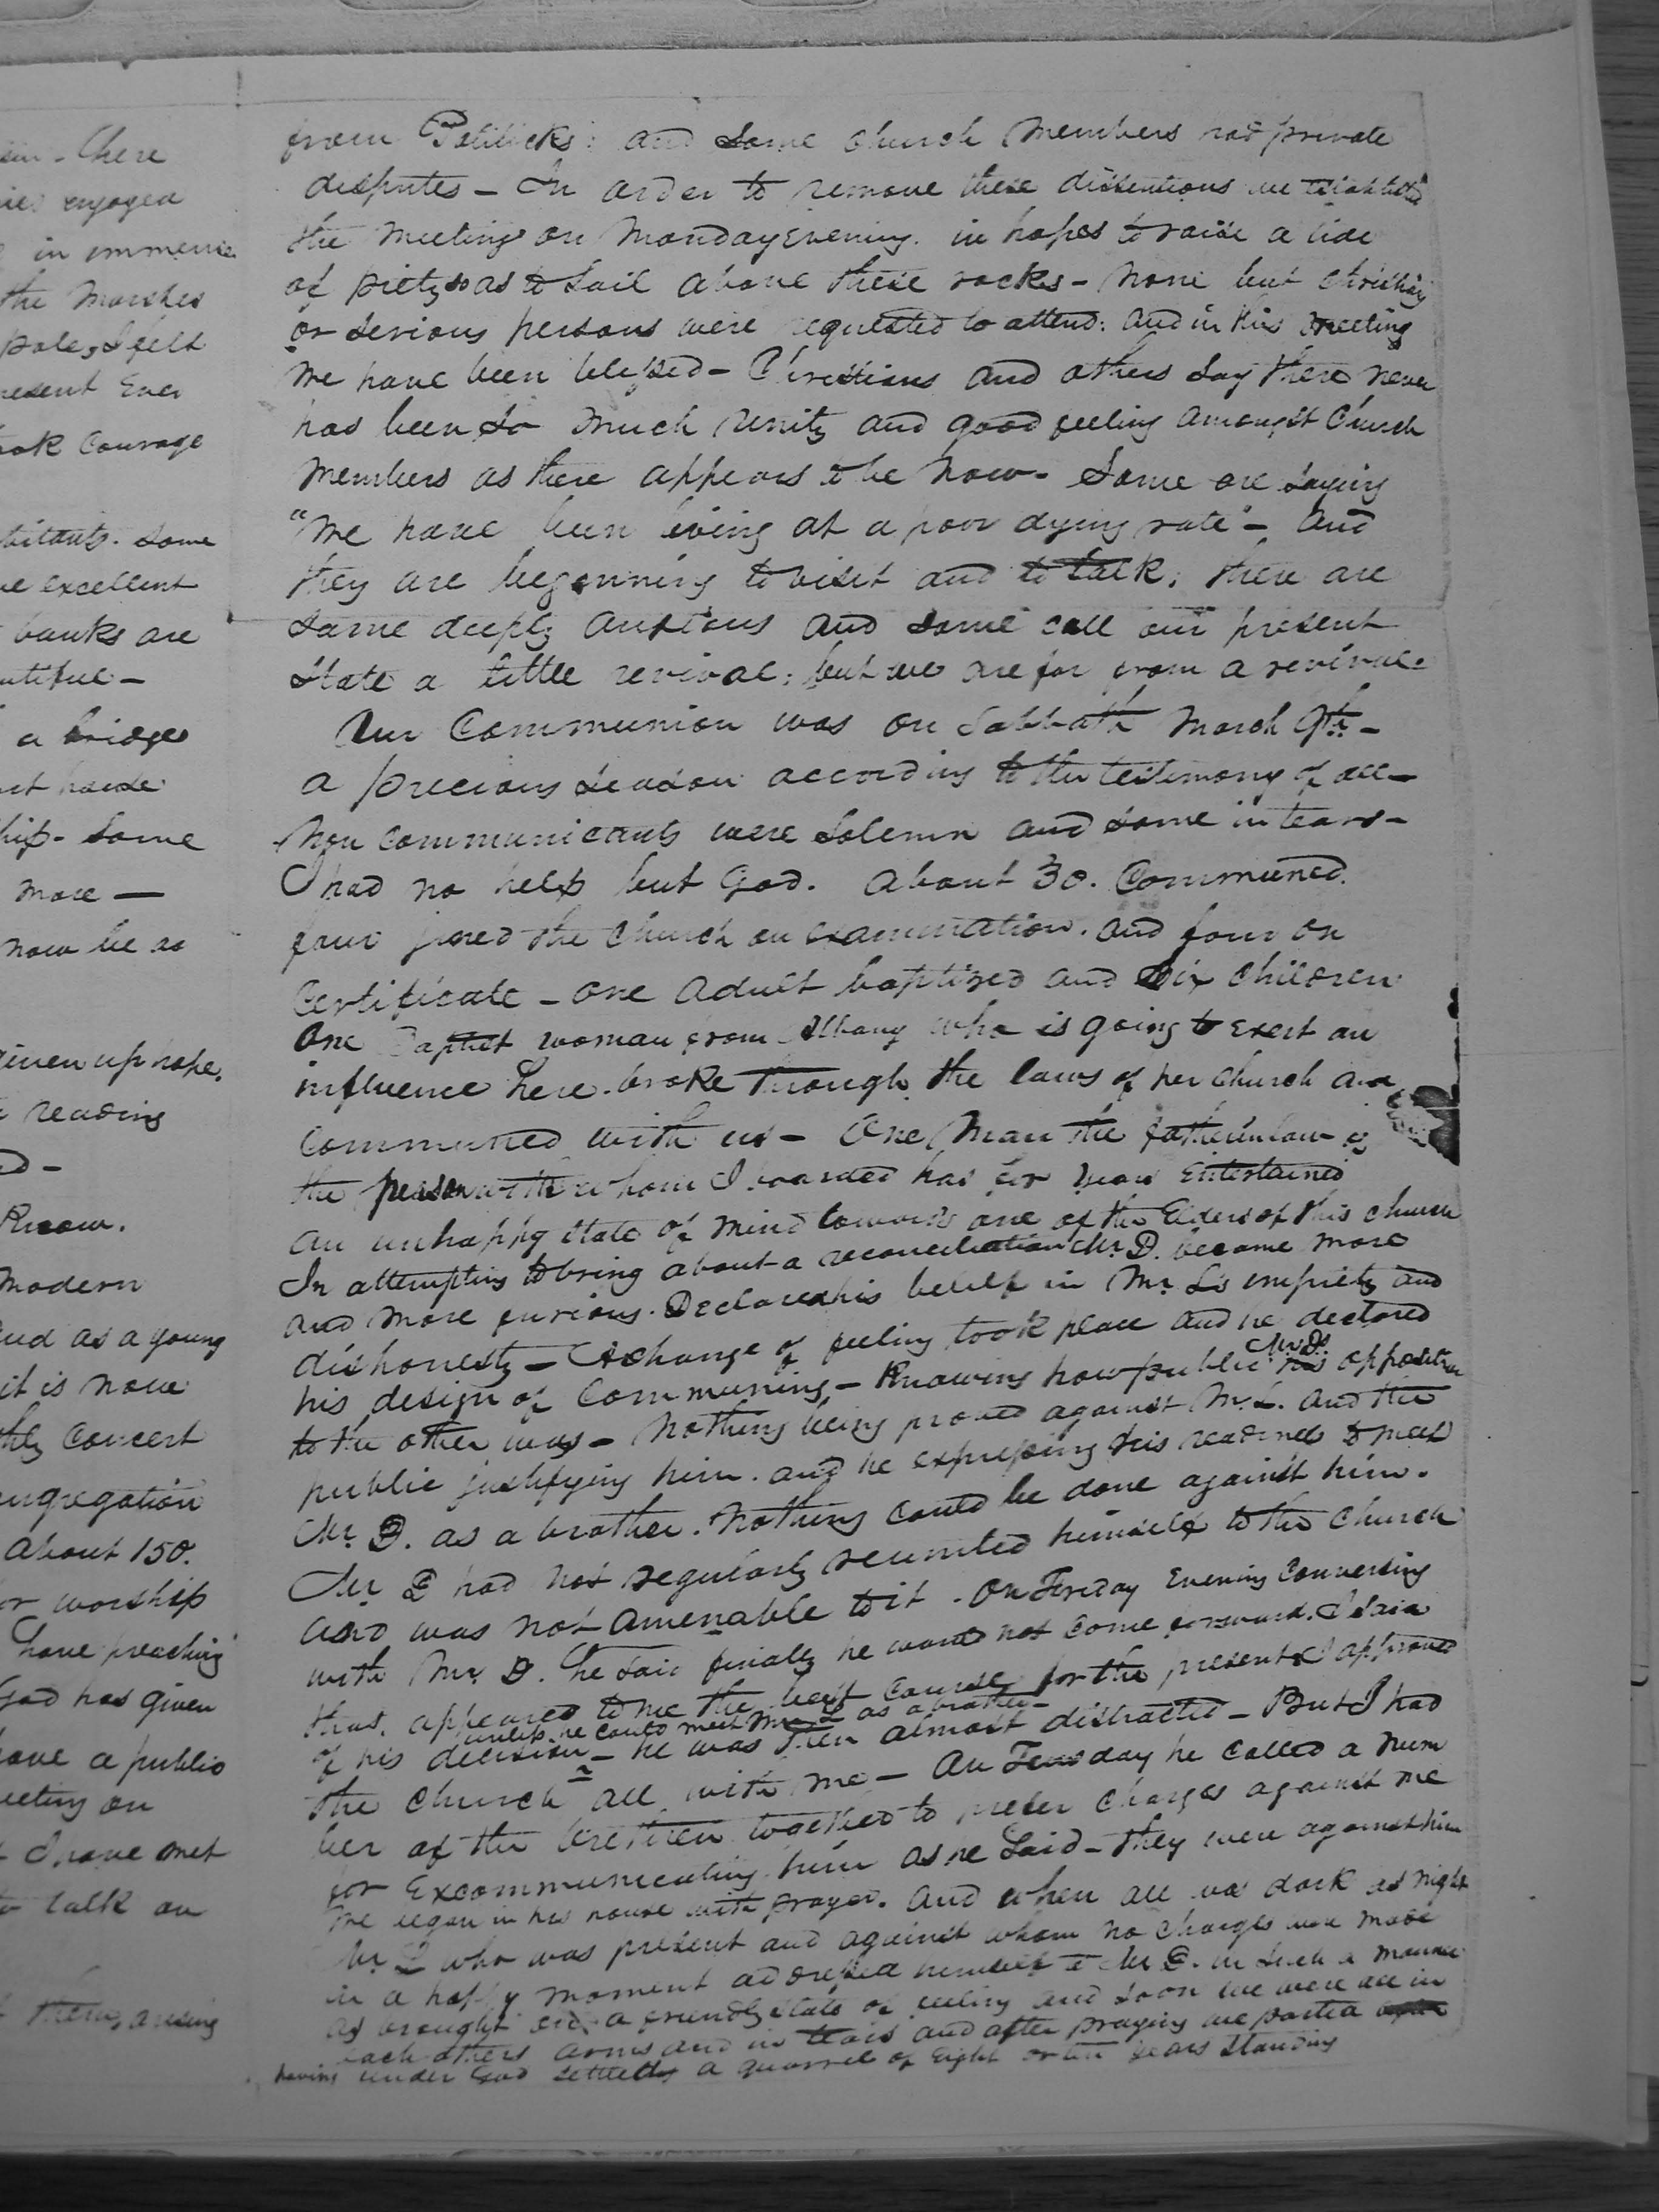 sin - There
engaged
in immense
the Marshes
pole, I felt
present Ever
took Courage
bitants. Some
excellent
banks are
utiful -
a bridge
house
ship - Some
more -
now be as
given up hope.
reading
Know.
Modern
and as a young
it is now
thly Concert
ongregation
About 150.
or worship
have preaching
God has given
have a public
eeting on
I have met
to talk on
them, arising
from Politicks: and some church members had private
disputes - In order to remove these dissentions we established
the meeting on Monday Evening. in hopes to raise a tide
of piety so as to sail above these rocks - None but christians
or serious persons were requested to attend: and in this meeting
we have been blessed - Christians and others say there never
has been so much unity and good feeling amongst Church
members as there appears to be now - Some are saying
"we have been living at a poor dying rate" - and
they are beginning to visit and to talk; there are
some deeply anxious and some call our present
state a little revival; but we are far from a revival.
Our Communion was on Sabbath March 9th -
a precious season according to the testimony of all -
Non communicants were solemn and some in tears -
I had no help but God. About 30. Communed.
four joined the church on examination. and four on
Certificate - one adult baptized and six children
One Baptist woman from Albany who is going to exert an
influence here - broke through the laws of her church and
communed with us - One man the father in law of
the person with whom I boarded has for years entertained
an unhappy state of mind towards one of the Elders of this church
In attempting to bring about a reconciliation Mr. D. became more
and more furious. Declared his belief in Mr. L's impiety and
dishonesty - exchange of feeling took place and he declared
his design of Communing - Knowing how public Mr. D's opposition
to the other was - Nothing being proved against Mr. L. and the
public justifying him. and he expressing his readiness to meet
Mr. D. as a brother. Nothing could be done against him.
Mr D had not regularly reunited himself to the church
and was not amenable to it. On Friday Evening Conversing
with Mr. D. he said finally he would not come forward. I said
that appeared to me the best course for the present & I approved
unless he could meet Mr L as a brother -
of his decision - he was then almost distracted - But I had
the church all with me - On Tuesday he called a num
ber of the brethren together to prefer charges against me
for Excommunicating him as he said - They were against him
We began in his house with prayer. and when all was dark as night
Mr. L who was present and against whom no charges were made
in a happy moment addressed himself to Mr D. in such a manner
as brought on a friendly state of feeling and soon we were all in
each others arms and in tears and after praying we parted
having under God settled a quarrel of Eight or ten years standing